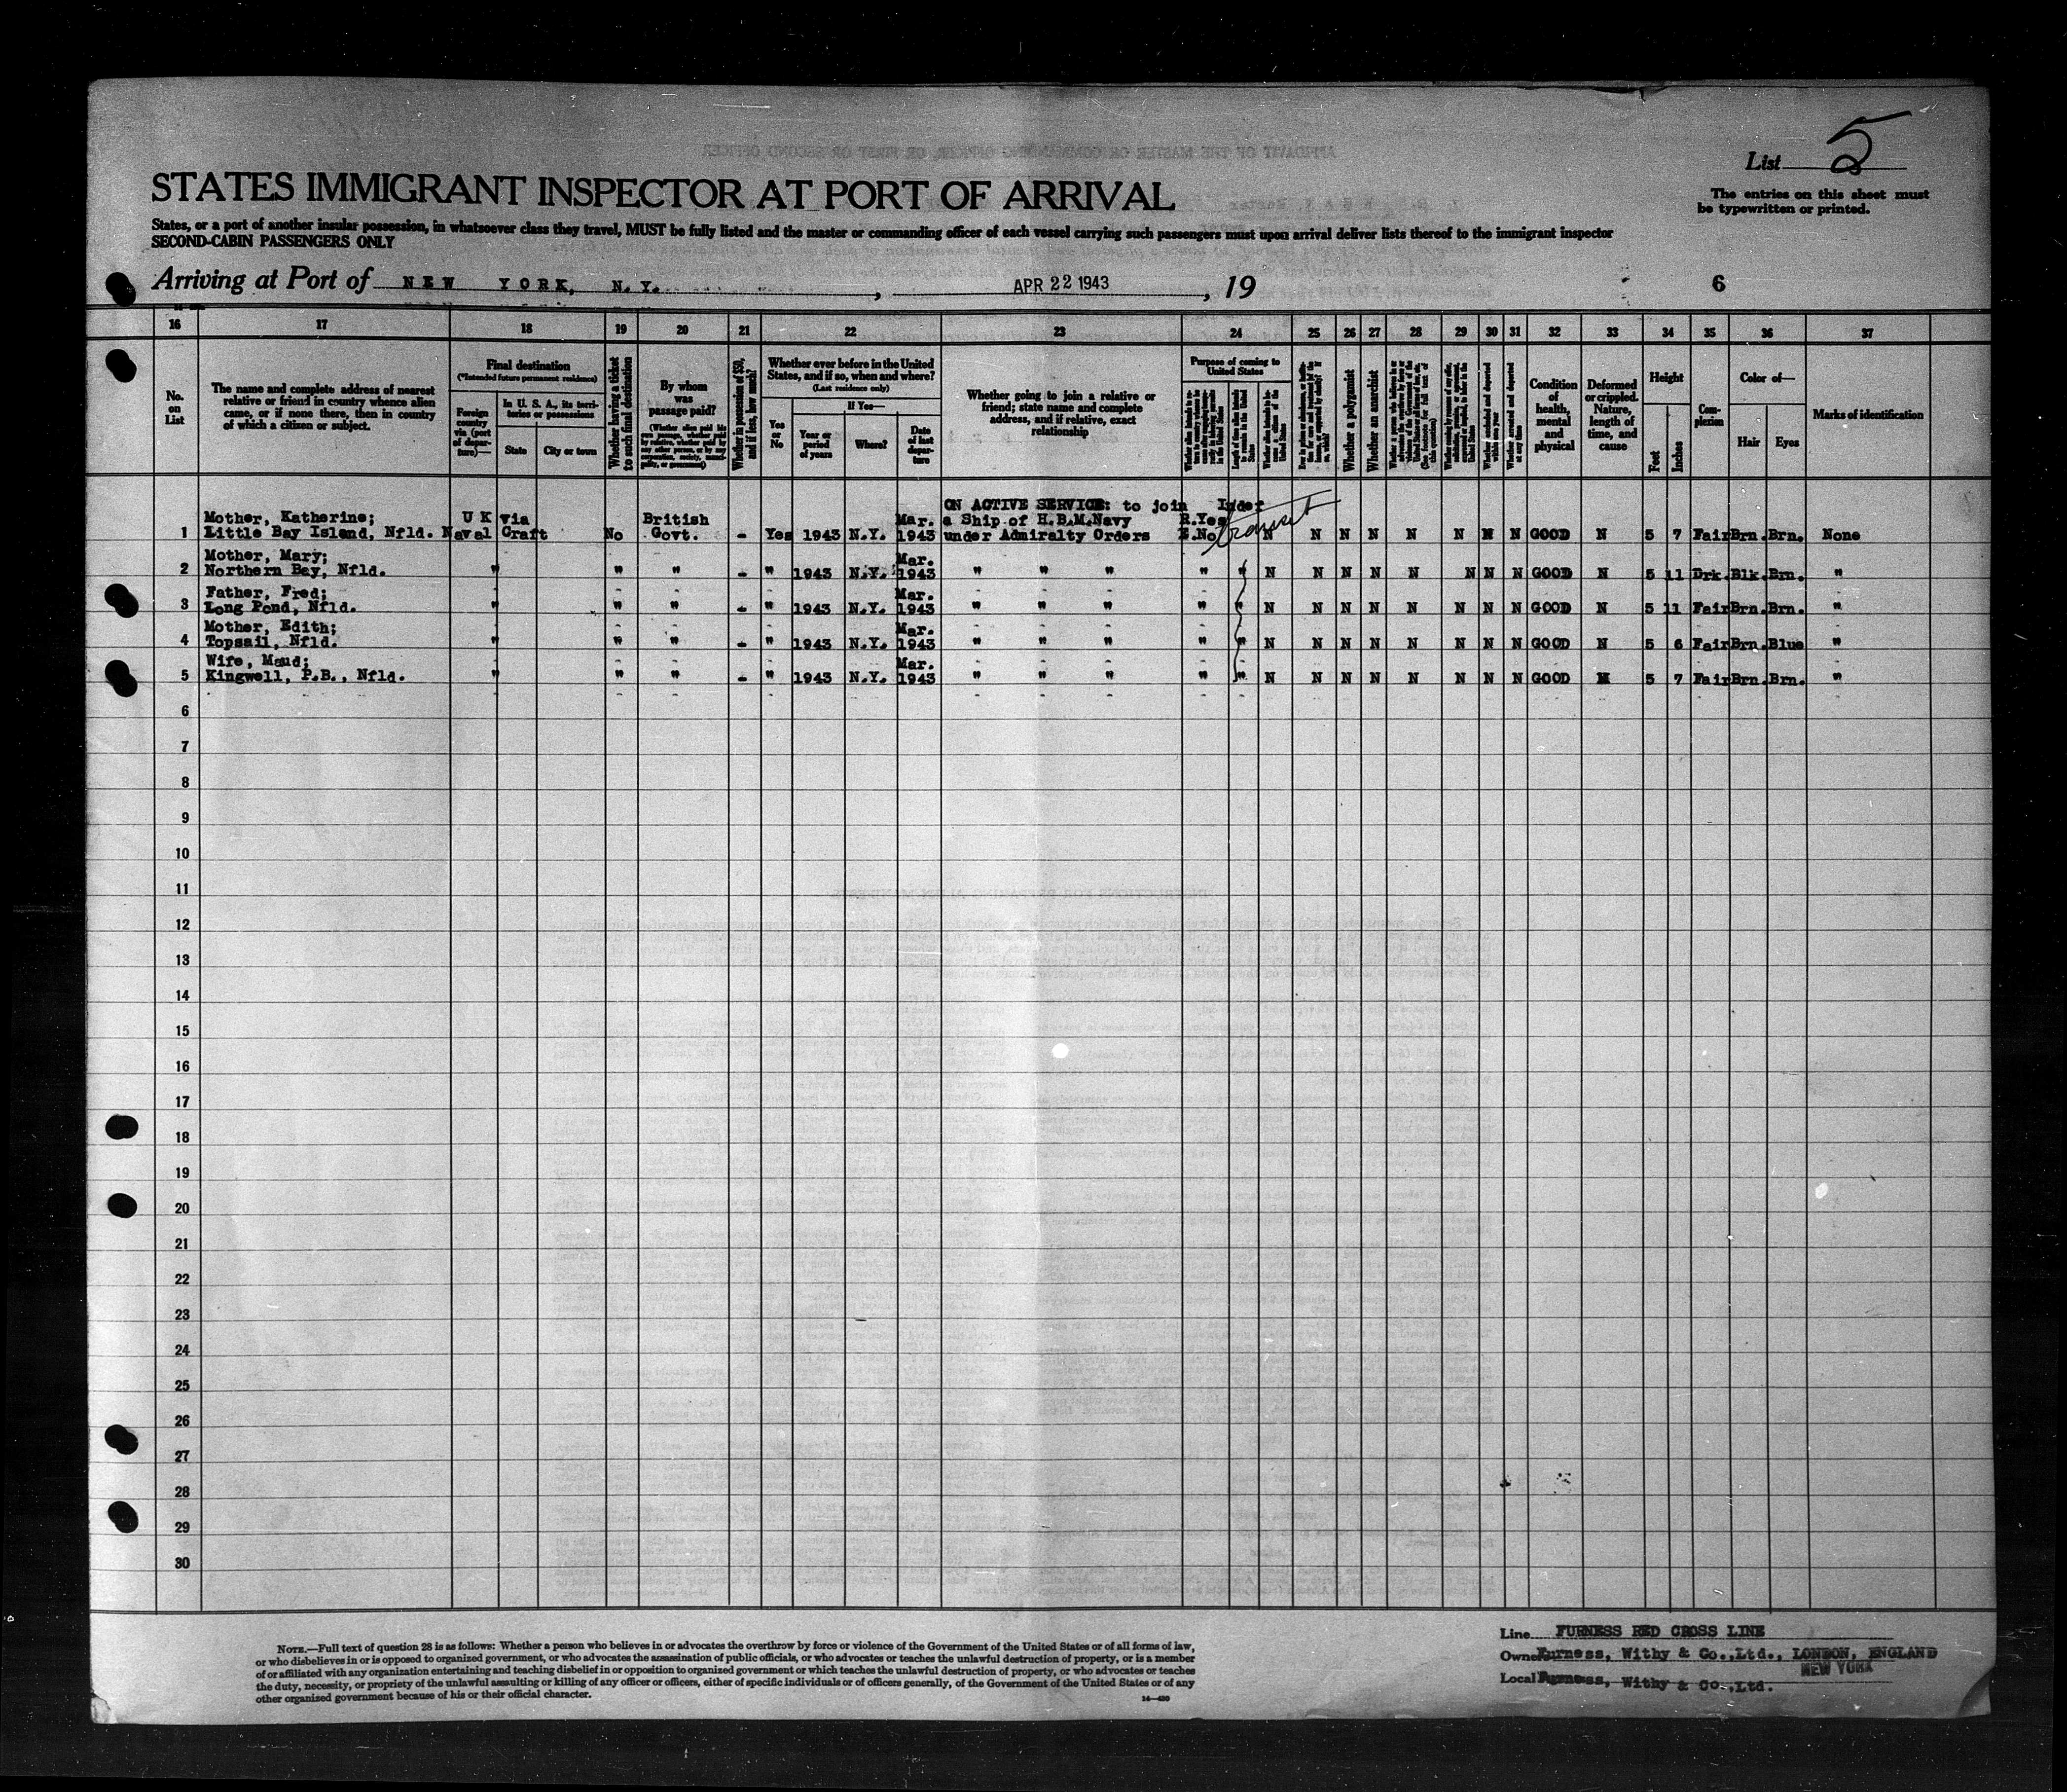 List 5
The entries on this sheet must
be typewritten or printed.
STATES IMMIGRANT INSPECTOR AT PORT OF ARRIVAL
States, or a port of another insular possession, in whatsoever class they travel, MUST be fully listed and the master or commanding officer of each vessel carrying such passengers must upon arrival deliver lists thereof to the immigrant inspector
SECOND-CABIN PASSENGERS ONLY
Arriving at Port of NEW YORK, N.Y. , APR 22 1943 , 19 6
16 17 18 19 20 21 22 23 24 25 26 27 28 29 30 31 32 33 34 35 36 37
No. on List
The name and complete address of nearest
relative or friend in country whence alien
came, or if none there, then in country
of which a citizen or subject.
Final destination
(*Intended future permanent residence)
Foreign country via (port of departure)—
In U. S. A., its territories or possessions
State
City or town
Whether having a ticket to such final destination
By whom was passage paid?
Whether in possession of $50, and if less, how much?
Whether ever before in the United
States, and if so, when and where?
(Last residence only)
Yes or No
If Yes—
Year or period of years
Where?
Date of last departure
Whether going to join a relative or
friend; state name and complete
address, and if relative, exact
relationship
Purpose of coming to
United States
Whether a polygamist
Whether an anarchist
Condition of health, mental and physical
Deformed or crippled. Nature, length of time, and cause
Height
Feet
Inches
Complexion
Color of—
Hair
Eyes
Marks of identification
ON ACTIVE SERVICE: to join
Mother, Katherine; U K via British Mar. a Ship of H.B.M.Navy R.Yes transit
1 Little Bay Island, Nfld. Naval Craft No Govt. - Yes 1943 N.Y. 1943 under Admiralty Orders E.No N N N N N N N N GOOD N 5 7 Fair Brn. Brn. None
Mother, Mary; Mar.
2 Northern Bay, Nfld. " " " - " 1943 N.Y. 1943 " " " " " N N N N N N N N GOOD N 5 11 Drk. Blk. Brn. "
Father, Fred; Mar.
3 Long Pond, Nfld. " " " - " 1943 N.Y. 1943 " " " " " N N N N N N N N GOOD N 5 11 Fair Brn. Brn. "
Mother, Edith; Mar.
4 Topsail, Nfld. " " " - " 1943 N.Y. 1943 " " " " " N N N N N N N N GOOD N 5 6 Fair Brn. Blue "
Wife, Maud; Mar.
5 Kingwell, P.B., Nfld. " " " - " 1943 N.Y. 1943 " " " " " N N N N N N N N GOOD N 5 7 Fair Brn. Brn. "
6
7
8
9
10
11
12
13
14
15
16
17
18
19
20
21
22
23
24
25
26
27
28
29
30
NOTE.—Full text of question 28 is as follows: Whether a person who believes in or advocates the overthrow by force or violence of the Government of the United States or of all forms of law,
or who disbelieves in or is opposed to organized government, or who advocates the assassination of public officials, or who advocates or teaches the unlawful destruction of property, or is a member
of or affiliated with any organization entertaining and teaching disbelief in or opposition to organized government or which teaches the unlawful destruction of property, or who advocates or teaches
the duty, necessity, or propriety of the unlawful assaulting or killing of any officer or officers, either of specific individuals or of officers generally, of the Government of the United States or of any
other organized government because of his or their official character.
Line FURNESS RED CROSS LINE
Owner Furness, Withy & Co.,Ltd., LONDON, ENGLAND
NEW YORK
Local Furness, Withy & Co.,Ltd.